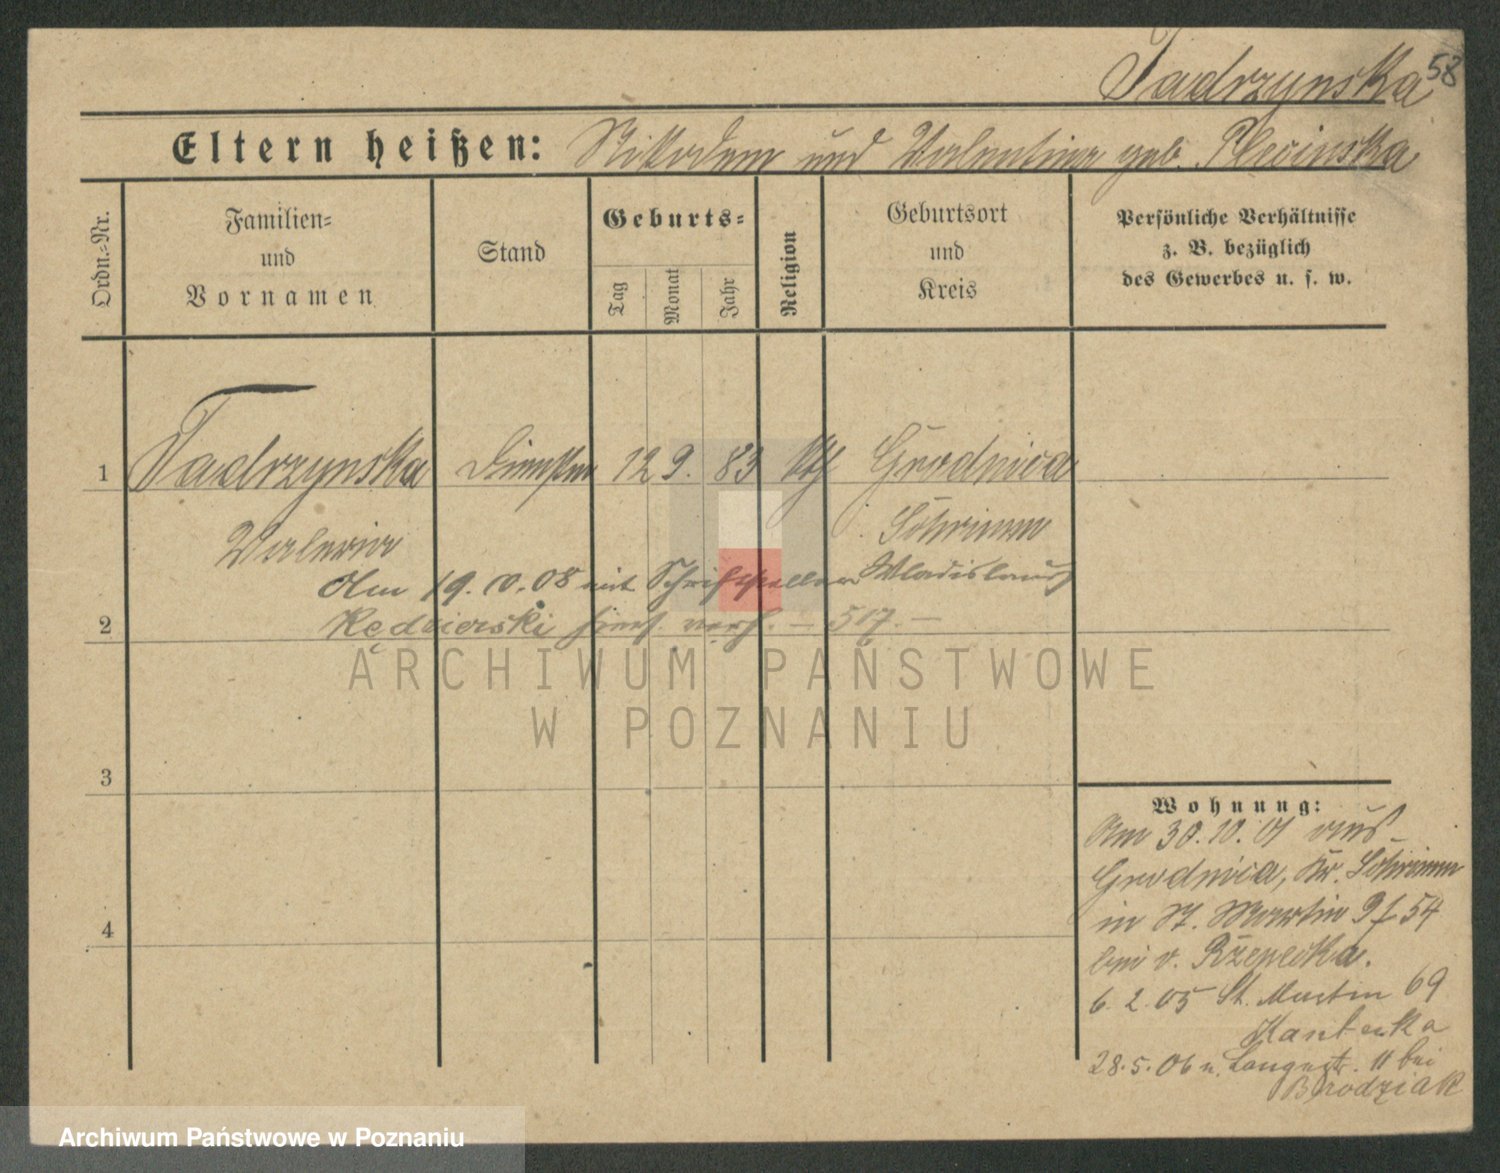 Tadrzynska 58
Eltern heißen: Nikodem und Valentine geb. Plecinska
Ordn.-Nr.
Familien-
und
Vornamen
Stand
Geburts-
Tag
Monat
Jahr
Religion
Geburtsort
und
Kreis
Persönliche Verhältnisse
z. B. bezüglich
des Gewerbes u. s. w.
1 Tadrzynska 12 9. 83 kth Grodnica
Valeria Schrimm
Am 19. 08 mit Schriftsteller Wladislaus
2 Kędzierski hier verh. — 517. —
3
4
Wohnung:
Am 30.10.01 aus
Grodnica, Kr. Schrimm
in St. Martin 54
bei v. Rzepecka.
6. 2. 05 St. Martin 69
28.5.06 n. Langestr. 11 bei
Brodziak
ARCHIWUM PAŃSTWOWE
W POZNANIU
Archiwum Państwowe w Poznaniu